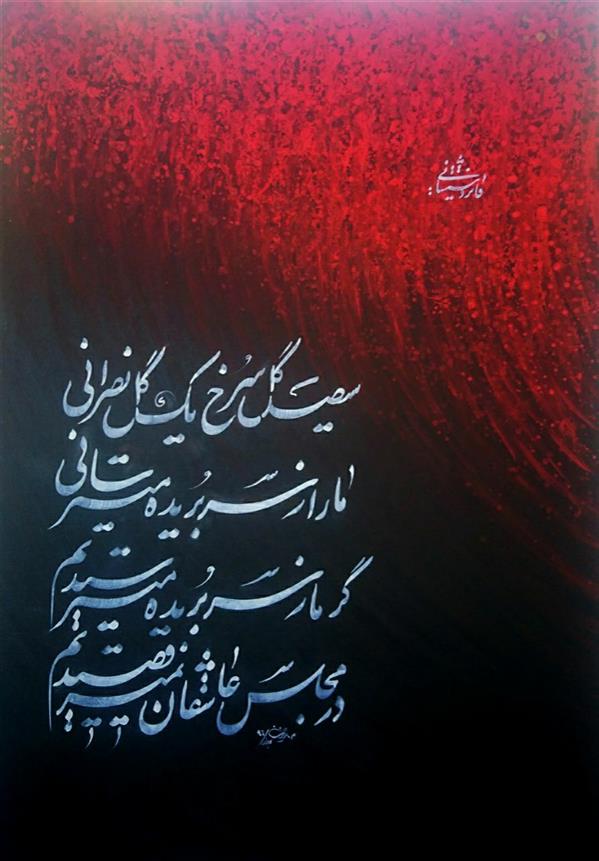 فائز دشتستانی:
سیصد گل سرخ یک گل نصرانی
ما را ز سر بریده میترسانی
گر ما ز سر بریده میترسیدیم
در مجلس عاشقان نمیرقصیدیم